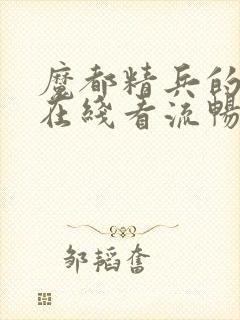 魔都精兵的
在线看流畅
邹韬奮